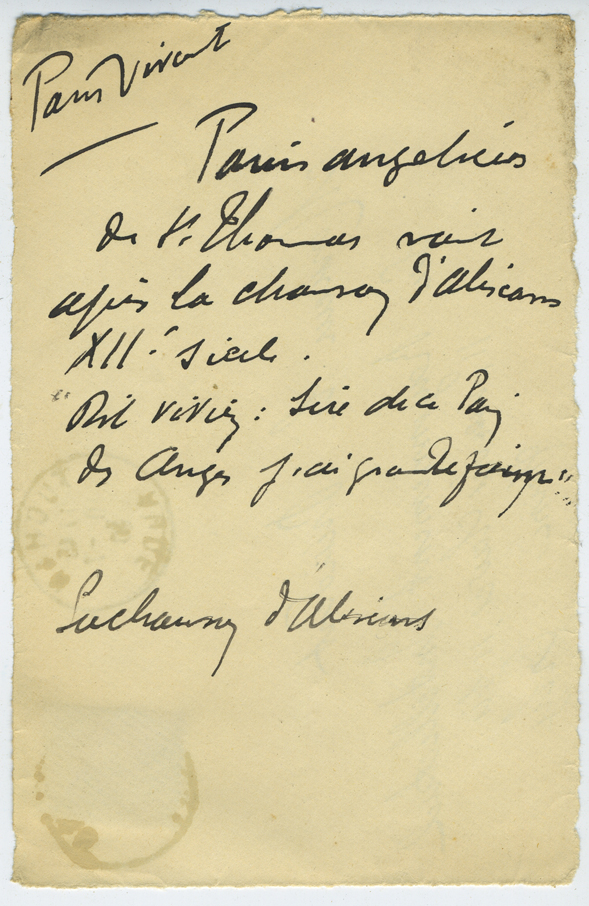 Pain Vivant
Panis angelicus
de St Thomas vient
après la chanson d'Aliscans
XIIe siècle.
" Dit Vivien : Sire de ce Pain
des Anges j'ai grande faim "
La chanson d'Aliscans